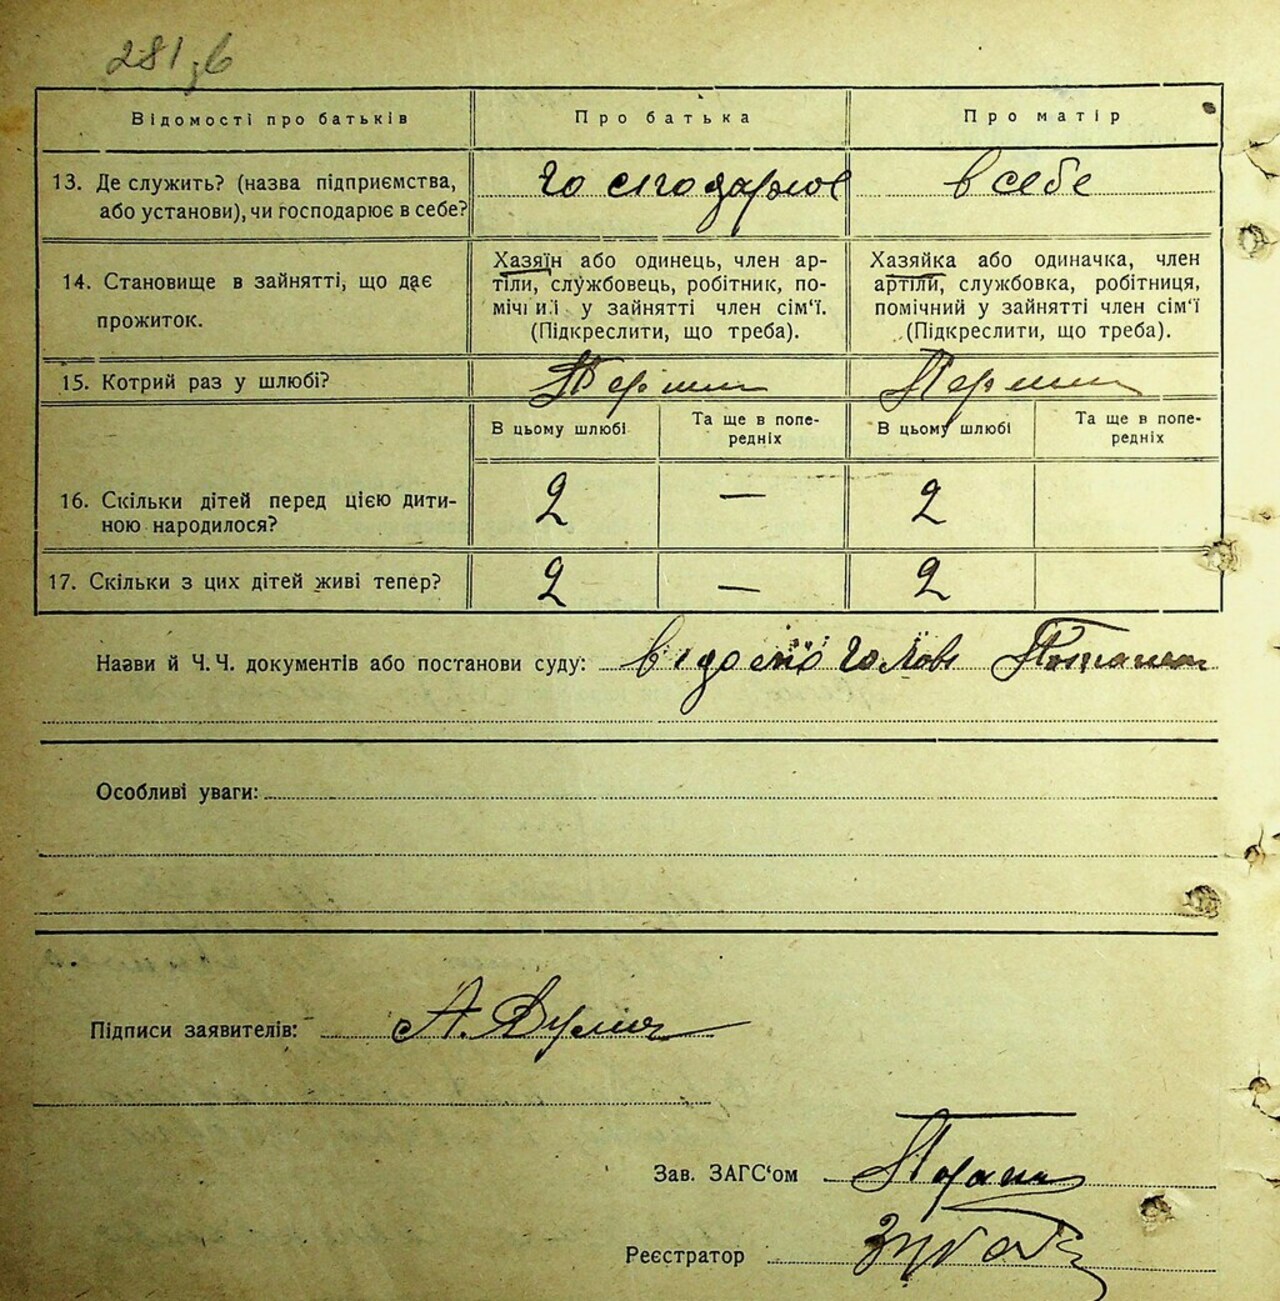 281,б
Відомості про батьків
Про батька
Про матір
13. Де служить? (назва підприємства,
або установи), чи господарює в себе?
господарює
в себе
14. Становище в зайнятті, що дає
прожиток.
Хазяїн або одинець, член ар-
тіли, службовець, робітник, по-
мічний у зайнятті член сім'ї.
(Підкреслити, що треба).
Хазяйка або одиначка, член
артіли, службовка, робітниця,
помічний у зайнятті член сім'ї
(Підкреслити, що треба).
15. Котрий раз у шлюбі?
Перший
Перший
В цьому шлюбі
Та ще в попе-
редніх
В цьому шлюбі
Та ще в попе-
редніх
16. Скільки дітей перед цією дити-
ною народилося?
2
—
2
17. Скільки з цих дітей живі тепер?
2
—
2
Назви й Ч.Ч. документів або постанови суду: відомо голові
Особливі уваги:
Підписи заявителів: А.
Зав. ЗАГС'ом
Реєстратор